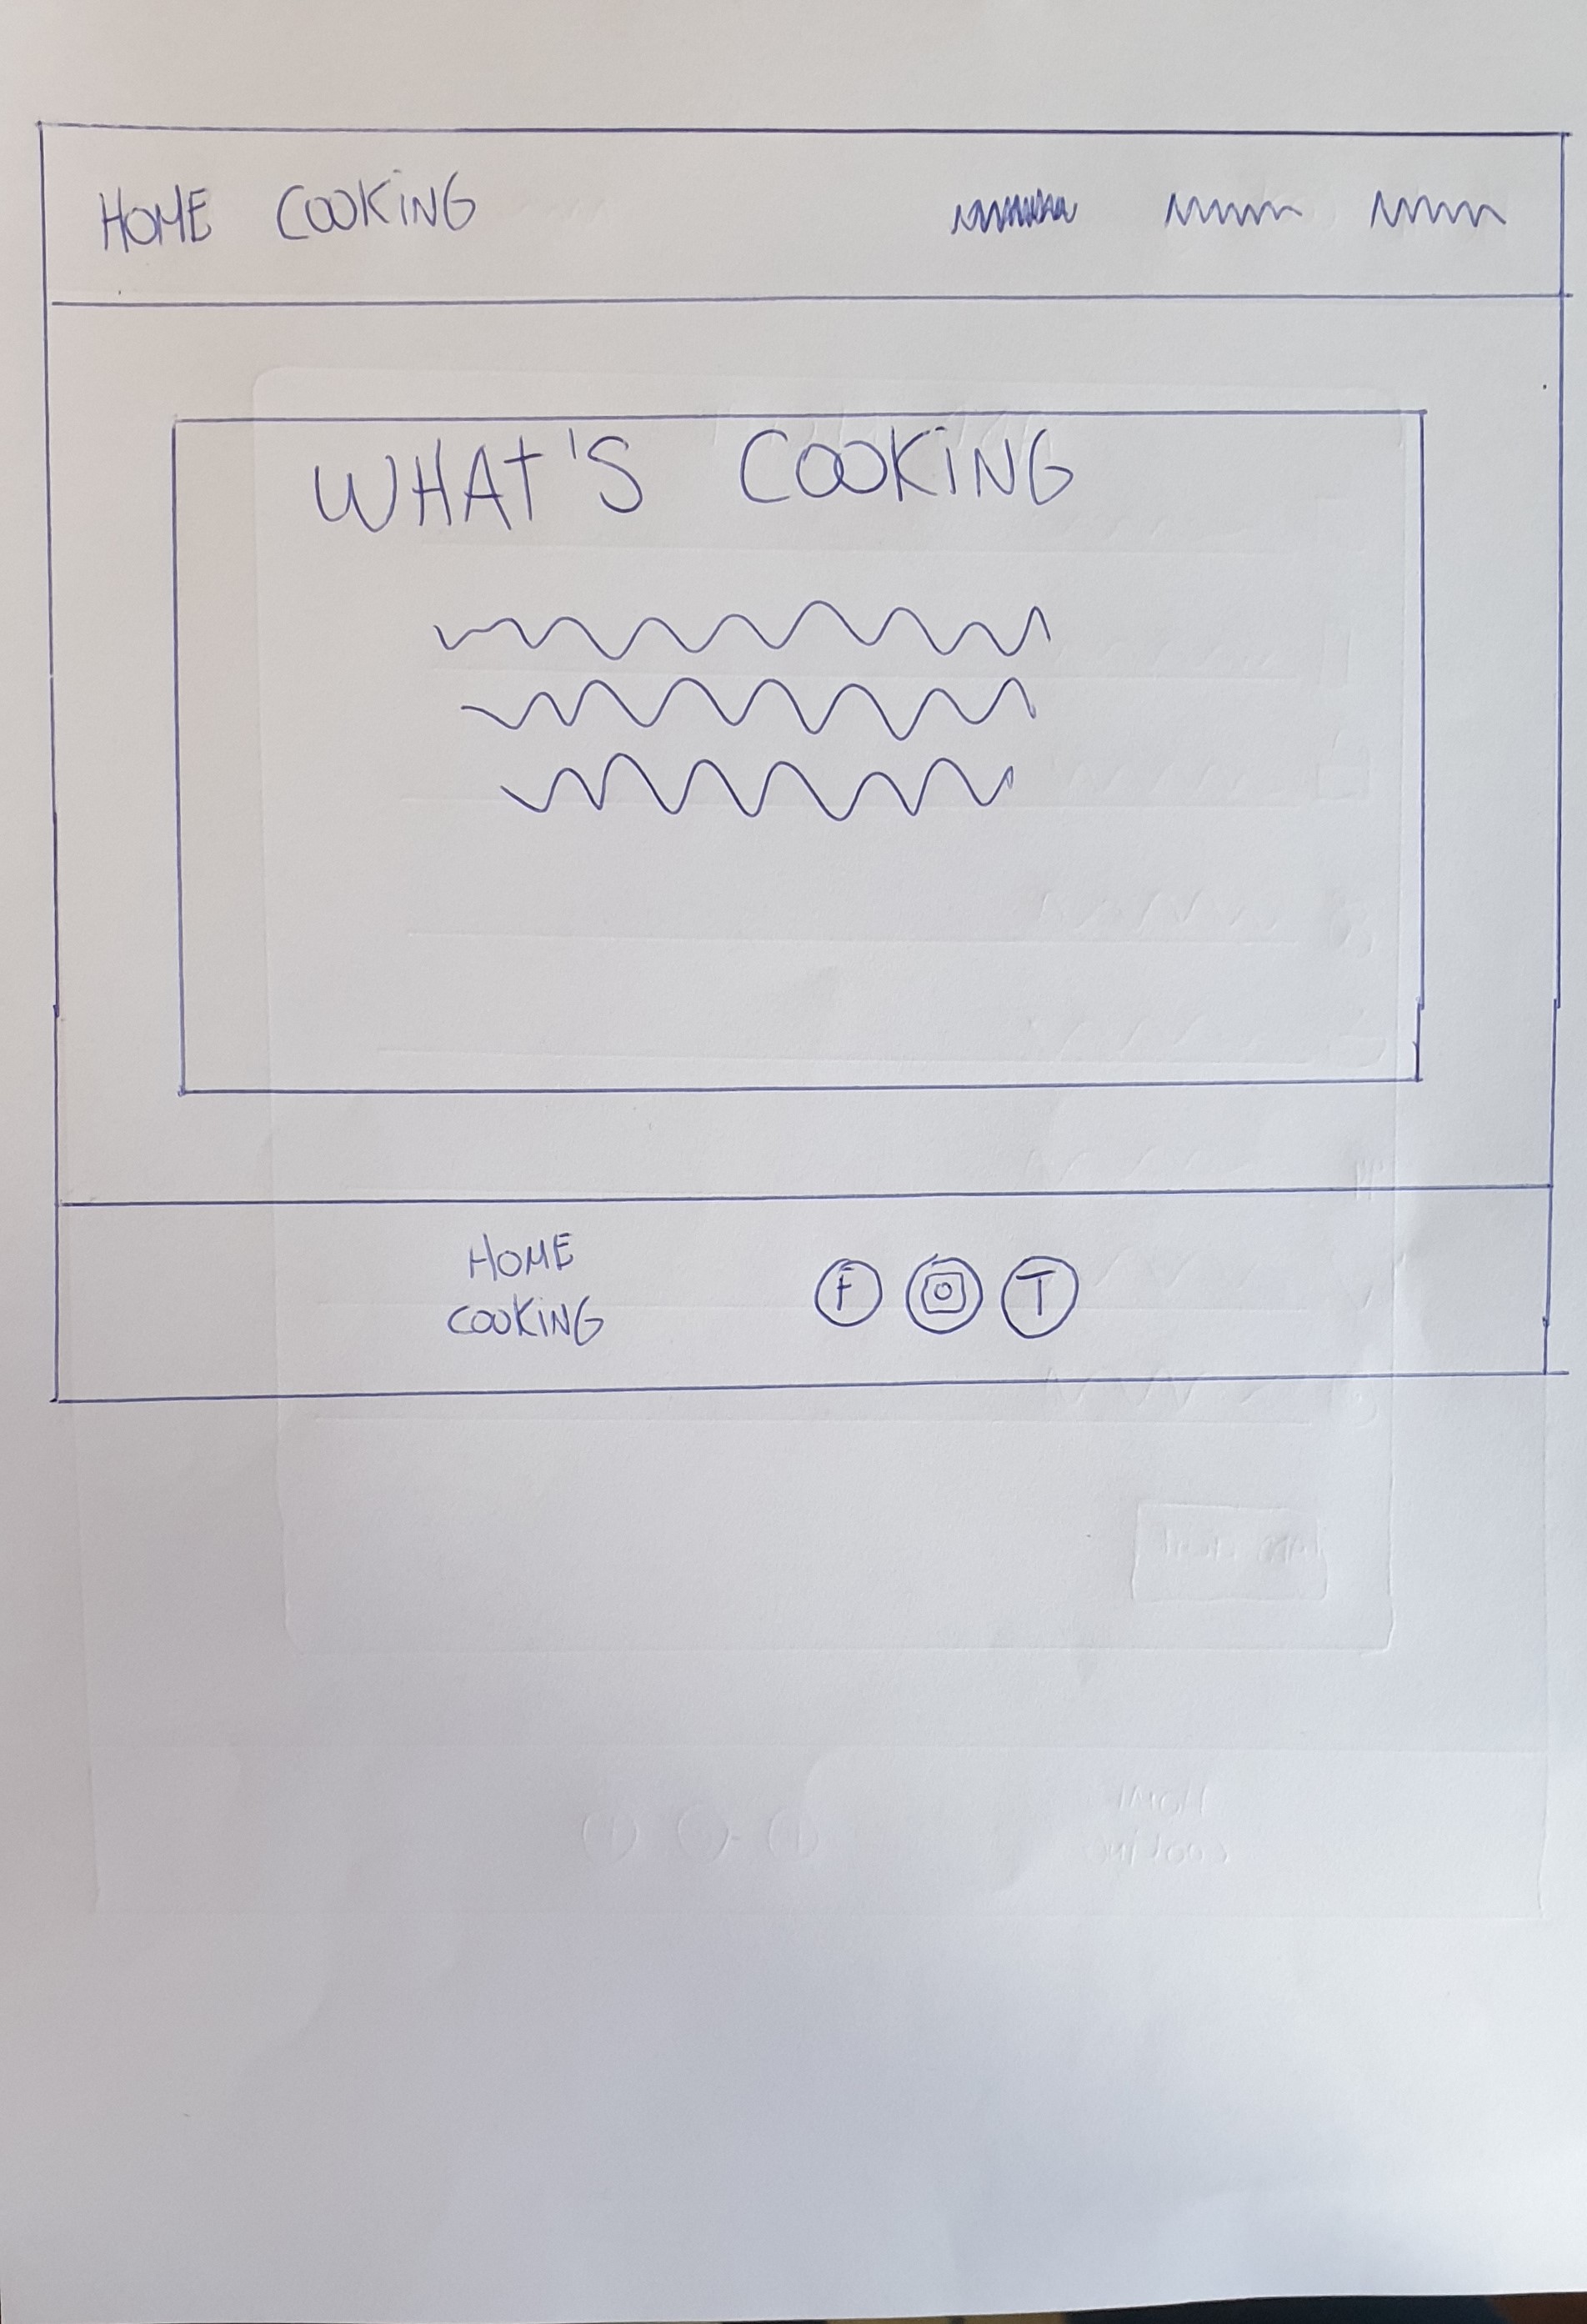 HOME COOKING
WHAT'S COOKING
HOME
COOKING
F T